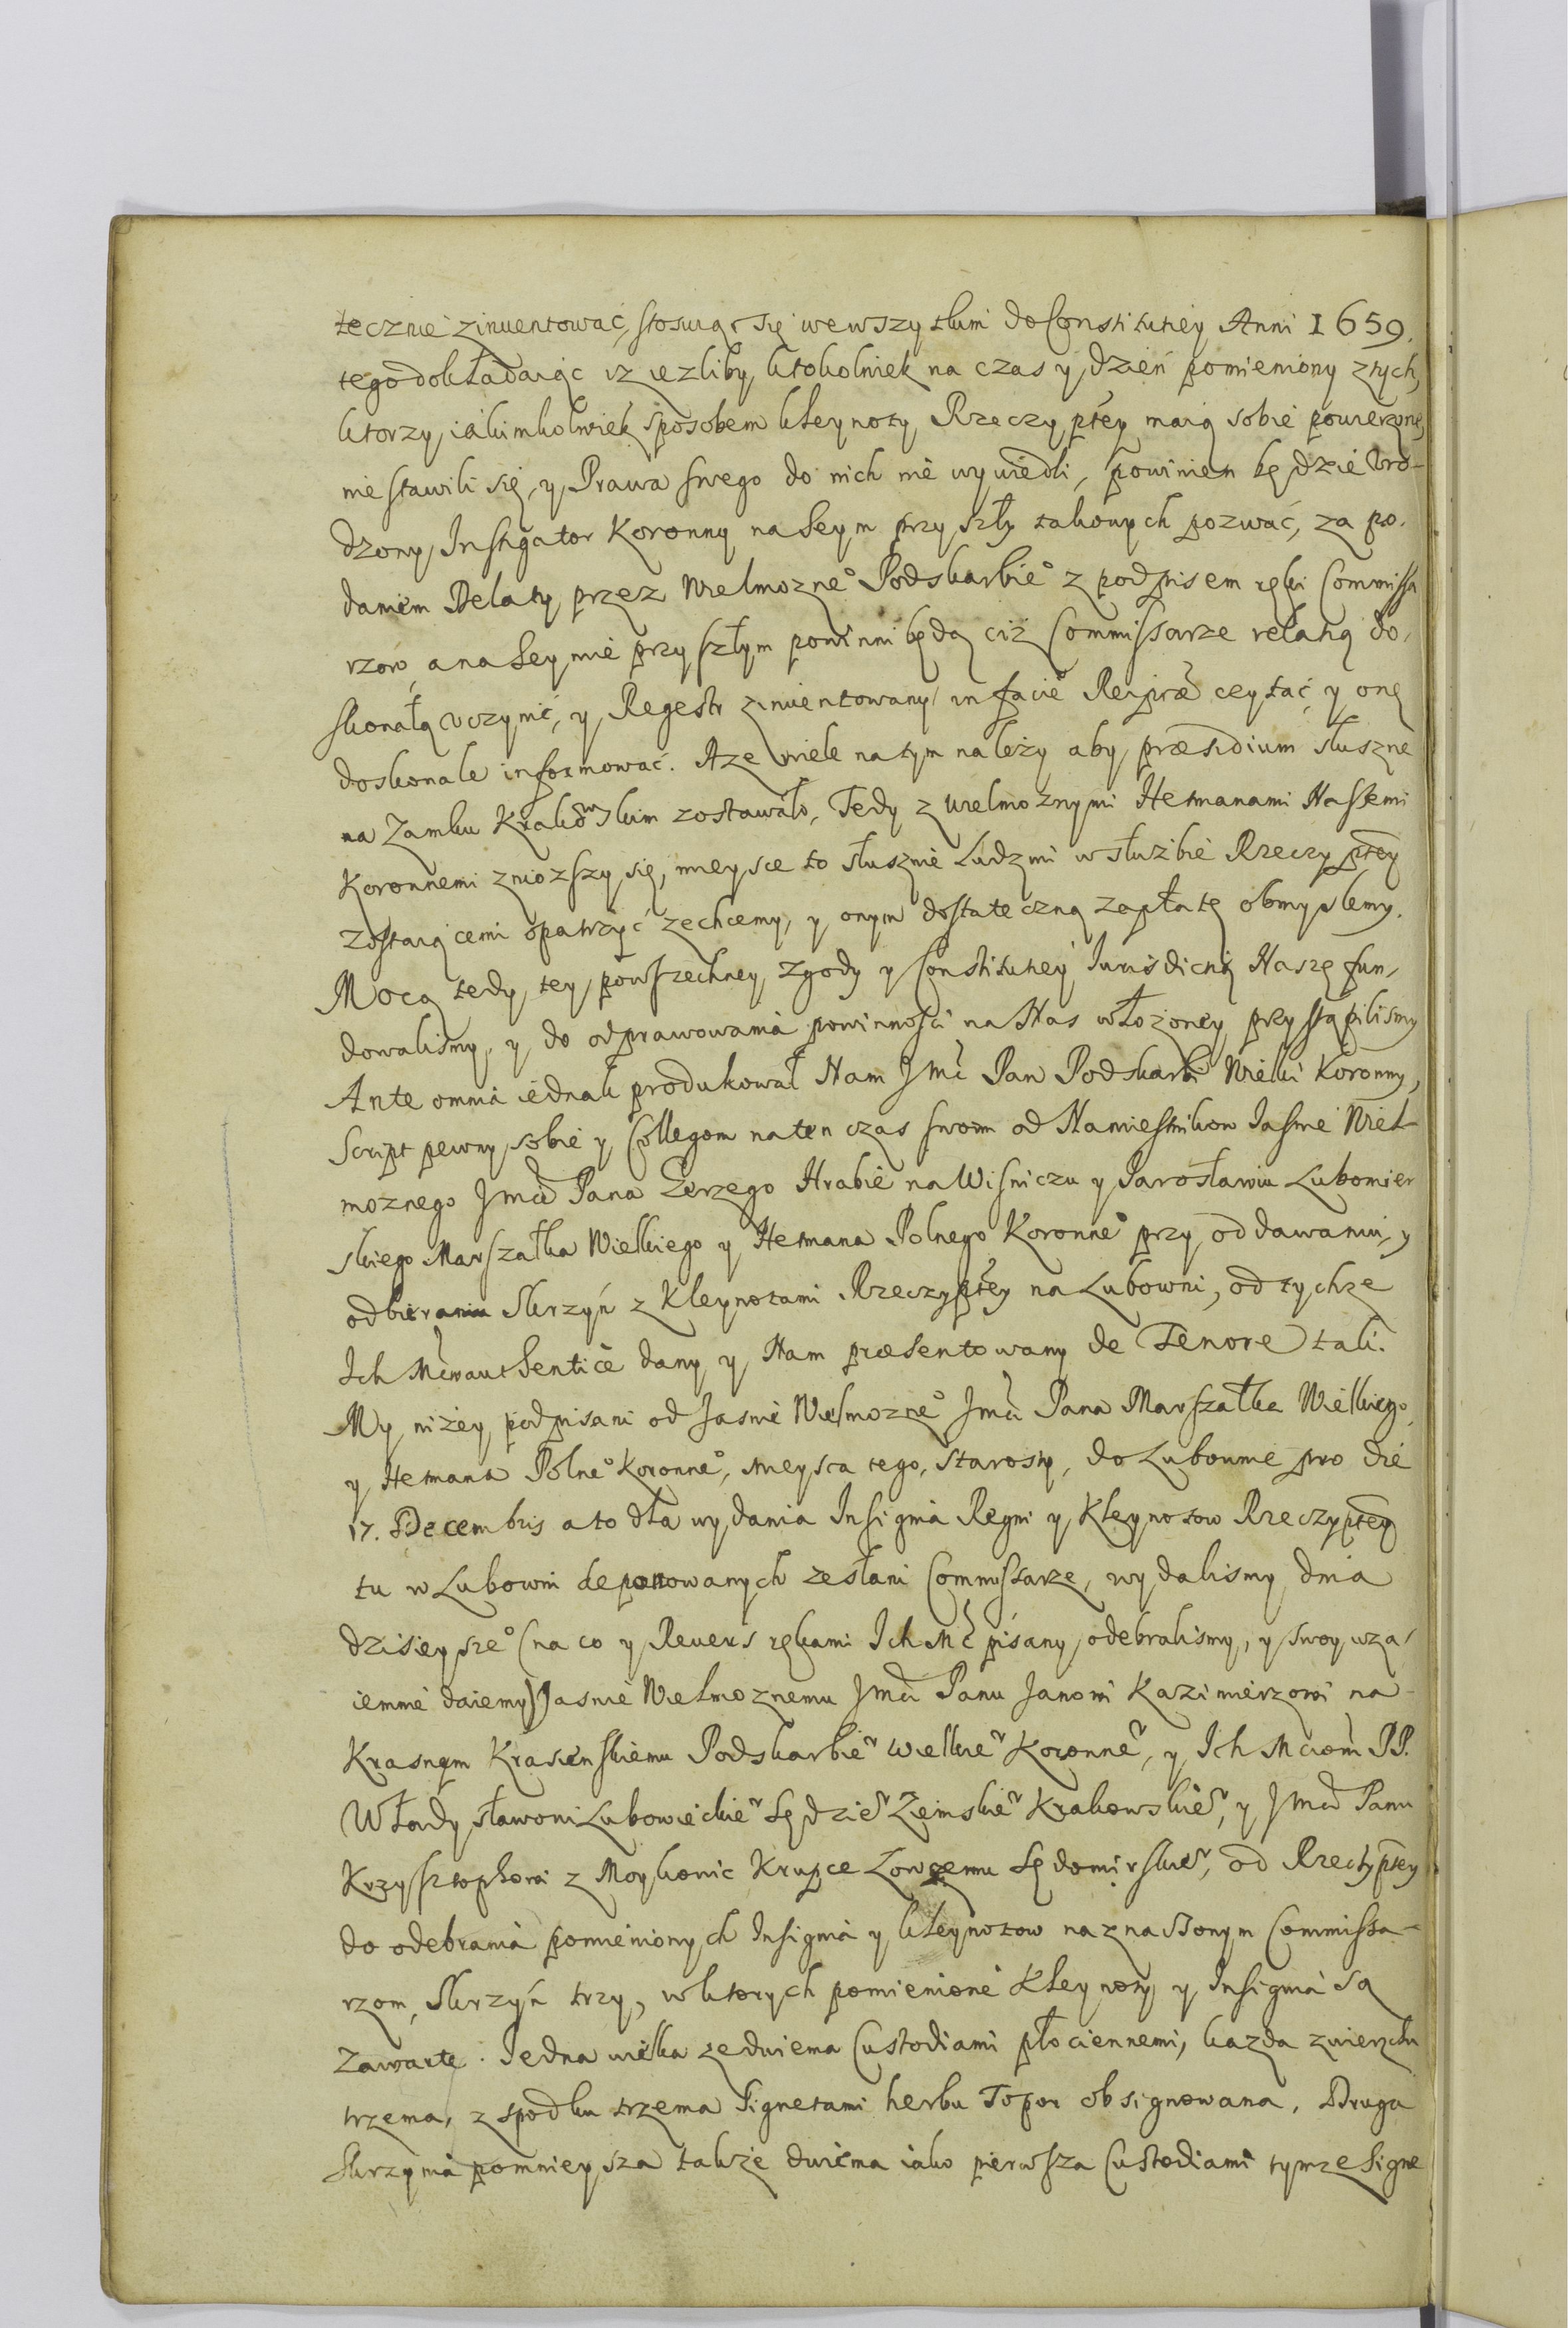 tecznie zinuentować, stosuiąc się we wszytkim do Constitutiey Anni 1659.
tego dokładaiąc iz iezliby ktokolwiek na czas y dzień pomieniony z tych,
ktorzy iakimkolwiek sposobem kleynoty Rzeczyptey maią sobie powierzone,
nie stawili się, y Prawa swego do nich nie wywiedli, powinien będzie Vro-
dzony Instigator Koronny na Seym przyszły takowych pozwać, za po-
daniem Delaty przez Wielmozneº Podskarbieº z podpisem ręki Commissa
rzow, a na Seymie przyszłym powinni będą ciż Commissarze relatią do-
skonałą vczynić, y Regestr zinuentowany in facie Reipcæ czytać, y onę
doskonale informować. A ze wiele na tym nalezy aby præsidium słuszne
na Zamku Krakowskim zostawało, Tedy z wielmoznymi Hetmanami Naszemi
Koronnemi zniozszy się, mieysce to słusznie Ludzmi w słuzbie Rzeczyptey
zostaiącemi opatrzyć zechcemy, y onym dostateczną zapłatę obmyslemy.
Mocą tedy tey powszechney zgody y Constitutiey Iurisdictią Naszę fun-
dowalismy, y do odprawowania powinnosci na Nas włozoney przystąpilismy
Ante omnia iednak produkował Nam Jmć Pan Podskarbi Wielki Koronny,
Script pewny sobie y Collegom na ten czas swoim od Namiestnikow Iasnie Wiel-
moznego Jmći Pana Ierzego Hrabie na Wisniczu y Iarosławiu Lubomier
skiego Marszałka Wielkiego y Hetmana Polnego Koronneº przy oddawaniu y
odbieraniu Skrzyń z Kleynotami Rzeczyptey na Lubowni, od tychze
Ich Mciow authentice dany y Nam præsentowany de Tenore tali.
My niżey podpisani od Iasnie Wielmozneº Jmći Pana Marszałka Wielkiego,
y Hetmana Polneº Koronneº, mieysca tego, Starosty, do Lubownie pro die
17. Decembris a to dla wydania Insignia Regni y Kleynotow Rzeczyptey
tu w Lubowni deponowanych zesłani Commissarze, wydalismy dnia
dzisieyszeº (na co y Reuers rękami Ich Mć pisany odebralismy, y swoy wza-
iemnie daiemy) Jasnie Wielmoznemu Jmći Panu Janowi Kazimierzowi na
Krasnym Krasienskiemu Podskarbieᵘ Wielkieᵘ Koronneᵘ, y Ich Mciom PP.
Władysławowi Lubowieckieᵘ Sędzieᵘ Ziemskieᵘ Krakowskieᵘ, y Jmći Panu
Krzysztophowi z Moykowic Krupce Łowczemu Sędomirskieᵘ, od Rzeczyptey
do odebrania pomienionych Insignia y kleynotow naznaczonym Commissa-
rzom, Skrzyń trzy, w ktorych pomienione Kleynoty y Insignia są
zawarte. Iedna wielka ze dwiema Custodiami płociennemi, kazda zwierzchu
trzema, z spodku trzema Signetami herbu Topor obsignowana. Druga
Skrzynia pomnieysza takze dwiema iako pierwsza Custodiami tymze Signe